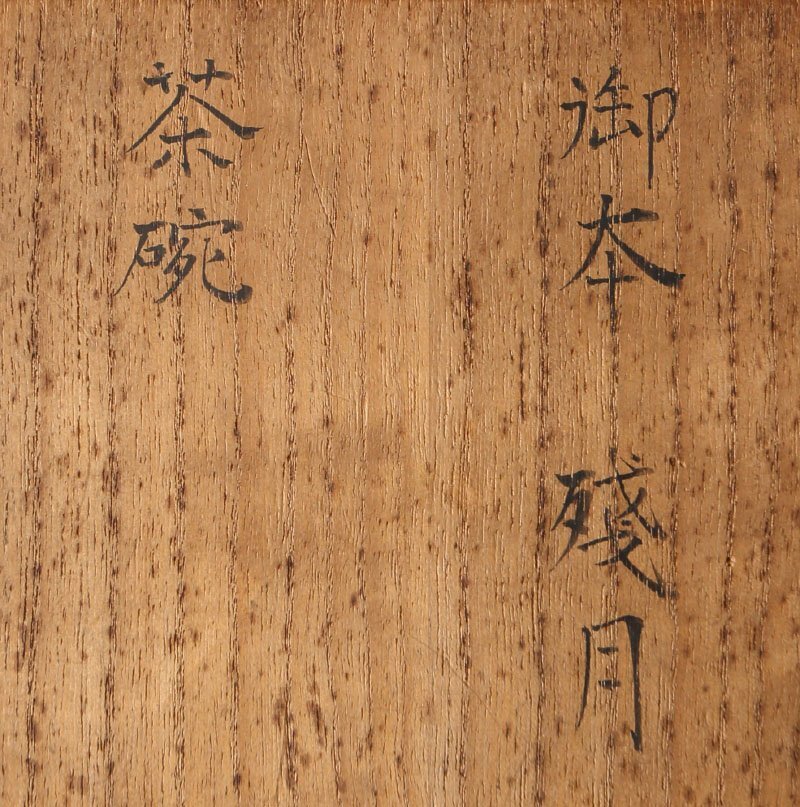 御本 殘月
茶碗